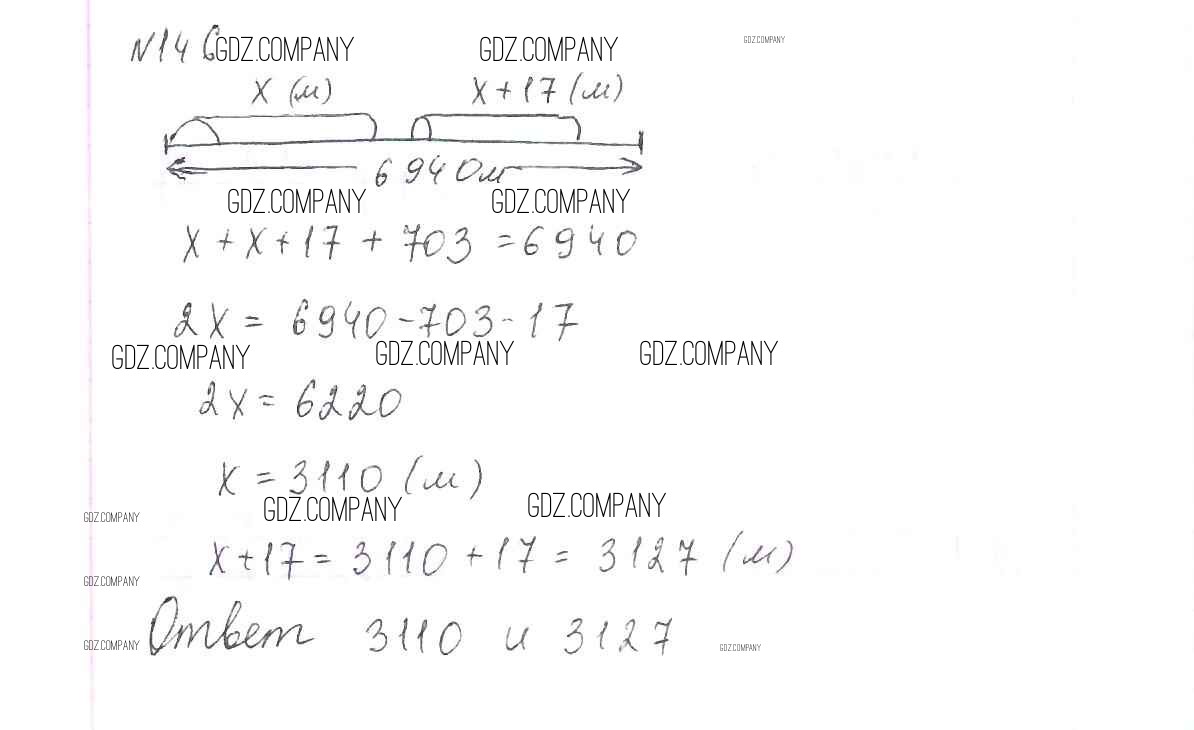 N146 GDZ.COMPANY GDZ.COMPANY GDZ.COMPANY
x (м) x + 17 (м)
6940м
GDZ.COMPANY GDZ.COMPANY
x + x + 17 + 703 = 6940
2x = 6940 - 703 - 17
GDZ.COMPANY GDZ.COMPANY GDZ.COMPANY
2x = 6220
x = 3110 (м)
GDZ.COMPANY GDZ.COMPANY GDZ.COMPANY
x + 17 = 3110 + 17 = 3127 (м)
GDZ.COMPANY
Ответ 3110 и 3127
GDZ.COMPANY GDZ.COMPANY